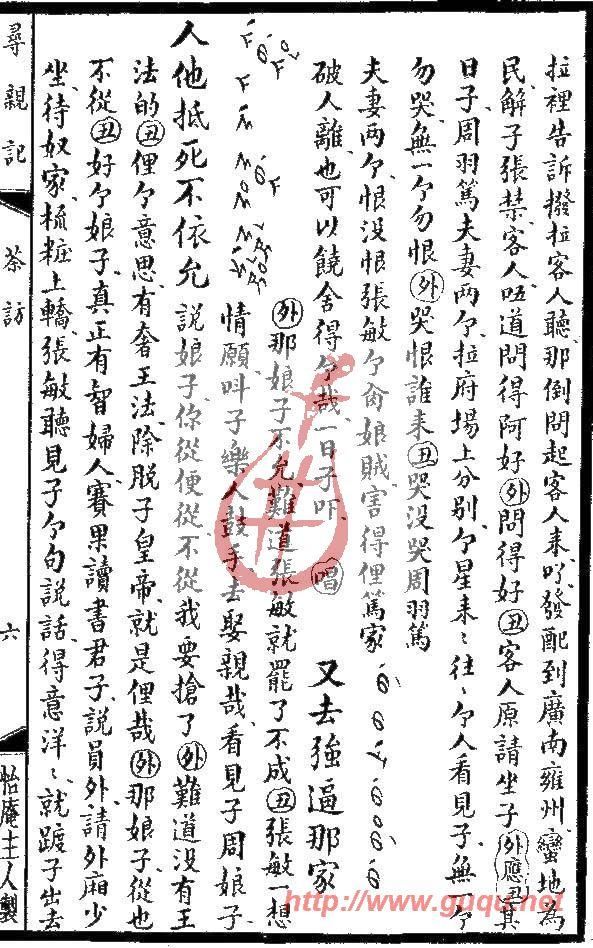 拉裡告訴撥拉客人聽那倒問起客人来哼發配到廣南雍州蠻地為
民解子張禁客人唔道問得阿好外問得好丑客人原請坐子外應丑其
日子周羽篤夫妻兩个拉府場上分别个星来〻往〻个人看見子無一个
勿哭無一个勿恨外哭恨誰来丑哭没哭周羽篤
夫妻兩个恨没恨張敏个肏娘賊害得俚篤家
破人離也可以饒舍得个哉一日子吓唱又去強逼那家
外那娘子不允難道張敏就罷了不成丑張敏一想
情願叫子樂人鼓手去娶親哉看見子周娘子
人他抵死不依允説娘子你從便從不從我要搶了外難道没有王
法的丑俚个意思有奢王法除脱子皇帝就是俚哉外那娘子從也
不從丑好个娘子真正有智婦人賽果讀書君子説員外請外廂少
坐待奴家梳粧上轎張敏聽見子个句説話得意洋〻就踱子出去
尋親記
茶訪
六
怡庵主人製
http://www.guqu.net